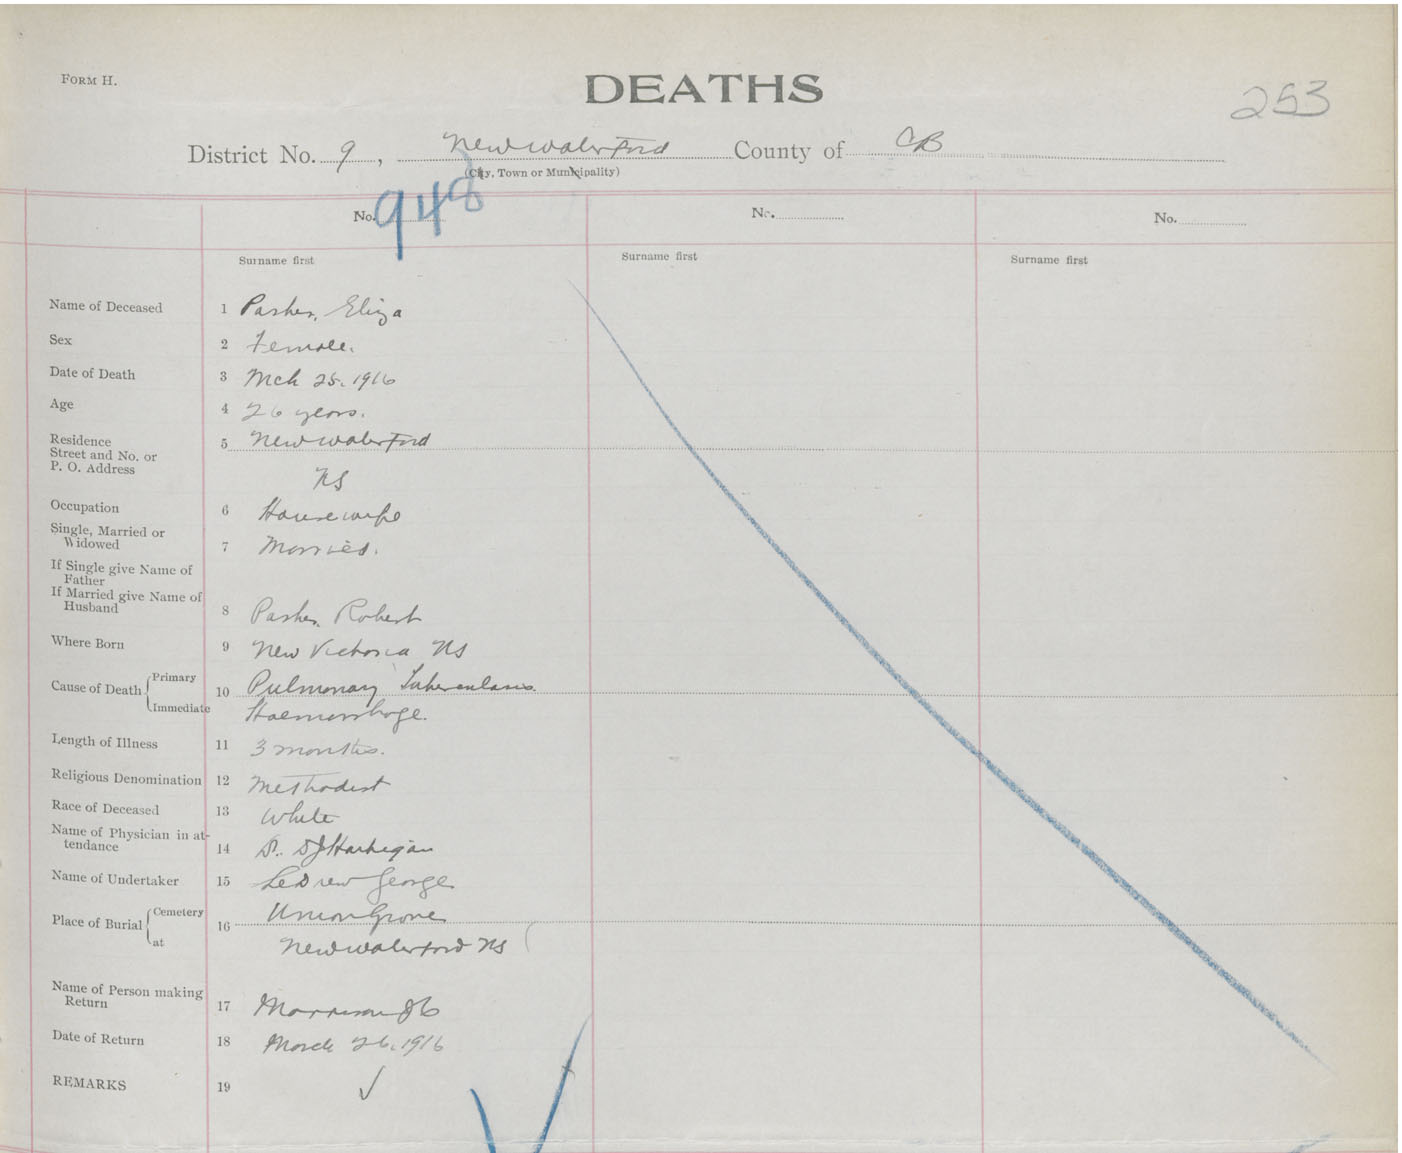 FORM H.
DEATHS
253
District No. 9, New Waterford County of CB
(City, Town or Municipality)
No. 948 No. No.
Surname first Surname first Surname first
Name of Deceased 1 Parker, Eliza
Sex 2 Female.
Date of Death 3 Mch 25, 1916
Age 4 26 years.
Residence 5 New Waterford
Street and No. or
P. O. Address NS
Occupation 6 Housewife
Single, Married or
Widowed 7 Married.
If Single give Name of
Father
If Married give Name of
Husband 8 Parker, Robert
Where Born 9 New Victoria NS
Cause of Death Primary 10 Pulmonary Tuberculosis.
Immediate Haemorrhage.
Length of Illness 11 3 months.
Religious Denomination 12 Methodist
Race of Deceased 13 White
Name of Physician in at-
tendance 14 Dr. Hartigan
Name of Undertaker 15 LeDrew George
Place of Burial Cemetery 16 Union Grove
at New Waterford NS
Name of Person making
Return 17 Morrison
Date of Return 18 March 26, 1916
REMARKS 19